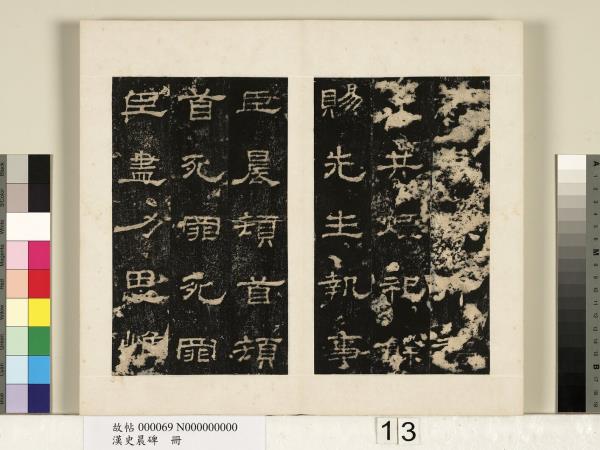 以共煙祀餘
賜先生執事
臣晨頓首頓
首死罪死罪
臣盡力思惟
故帖 000069 N000000000
漢史晨碑 冊
13